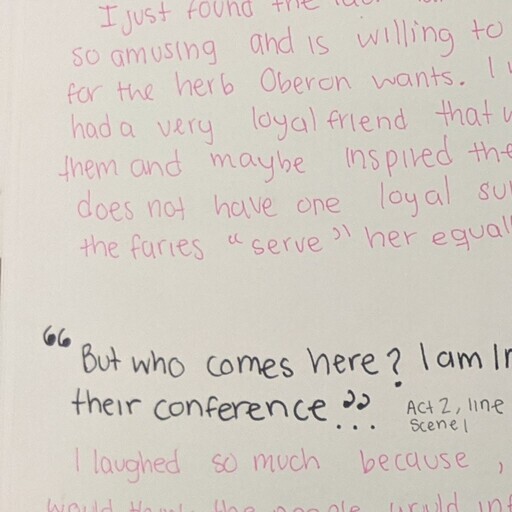 I just found the
so amusing and is willing to
for the herb Oberon wants. I
had a very loyal friend that
them and maybe inspired the
does not have one loyal
the faries "serve" her equal
"But who comes here? I am
their conference..." Act 2, line
Scene 1
I laughed so much because ,
would the people would